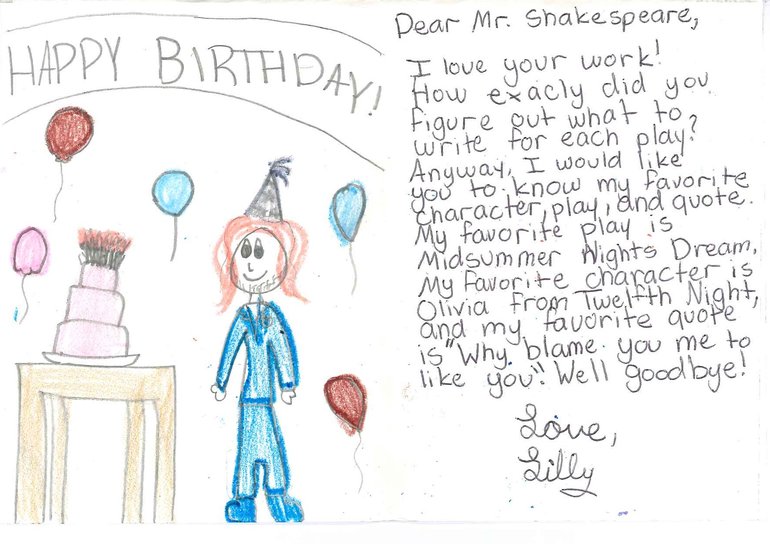 HAPPY BIRTHDAY!
Dear Mr. Shakespeare,
I love your work!
How exacly did you
figure out what to
write for each play?
Anyway, I would like
you to know my favorite
character, play, and quote.
My favorite play is
Midsummer Nights Dream,
My favorite character is
Olivia from Twelfth Night,
and my favorite quote
is "Why blame you me to
like you". Well goodbye!
Love,
Lilly